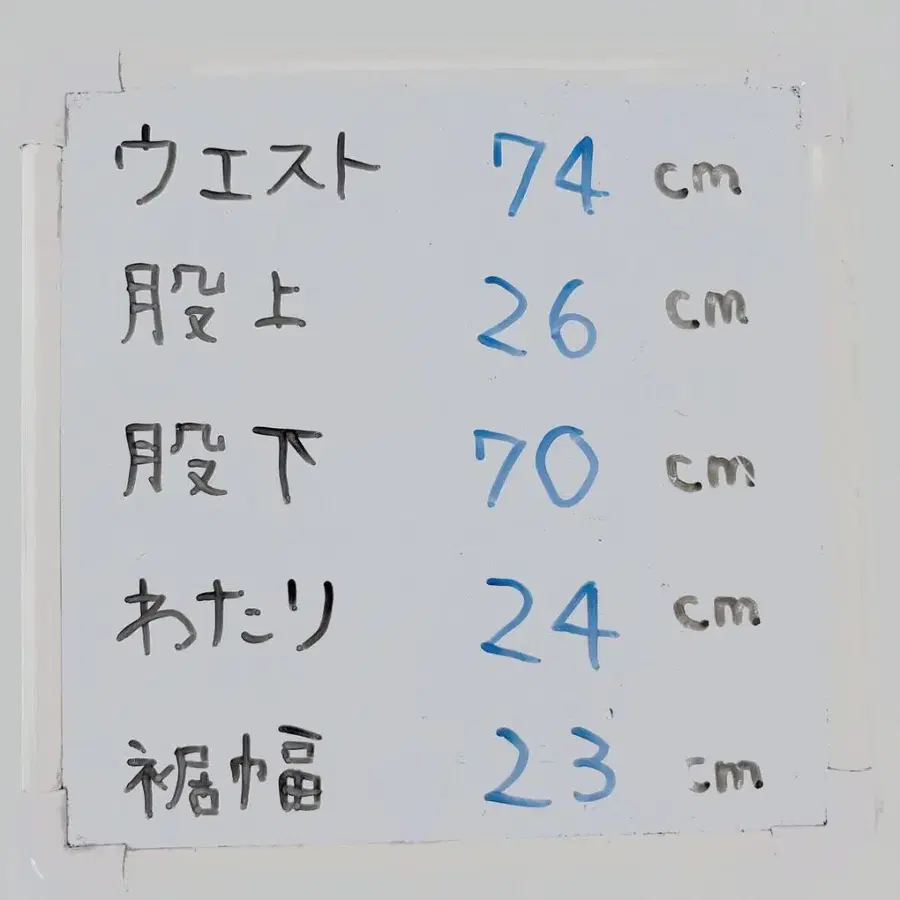 ウエスト 74 cm
股上 26 cm
股下 70 cm
わたり 24 cm
裾幅 23 cm